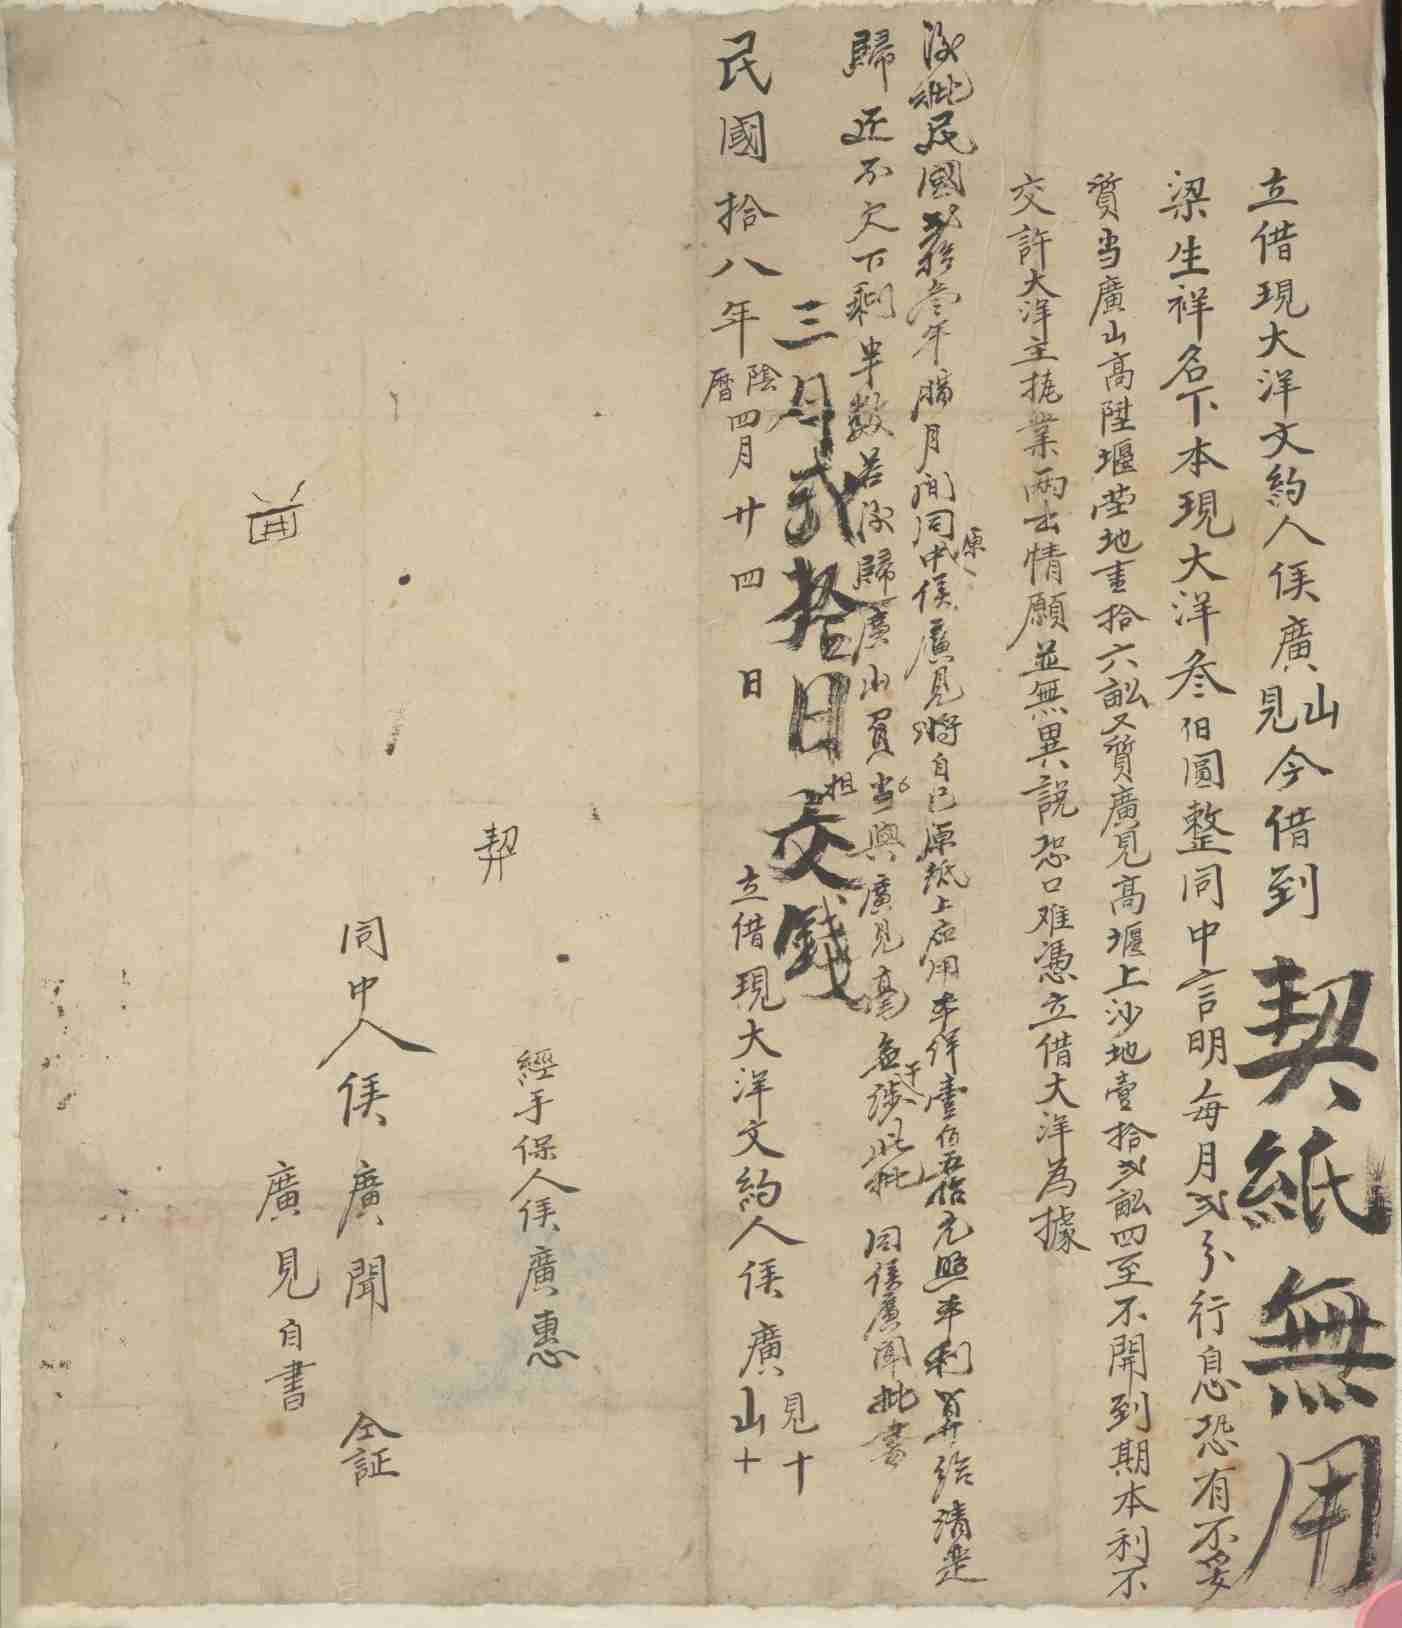 立借現大洋文約人侯廣山見今借到
契紙無用
梁生祥名下本現大洋叁佰圓整同中言明每月弍分行息恐有不妥
質当廣山高陞堰塋地壹拾六畝又質廣見高堰上沙地壹拾弍畝四至不開到期本利不
交許大洋主抳業兩出情願並無異說恐口难憑立借大洋為據
後批民國弍拾壹年臘月間同原中人侯廣見將自己原紙上应用本洋壹佰五拾元照本利算給清楚
歸还不欠下剩半数若後歸廣山買当相與廣見毫無干涉此批 同侯廣聞批書
三月弍拾日交錢
民國拾八年陰曆四月廿四日 立借現大洋文約人侯廣見十山十
經手保人侯廣惠
契
同中人侯廣聞 仝証
廣見自書